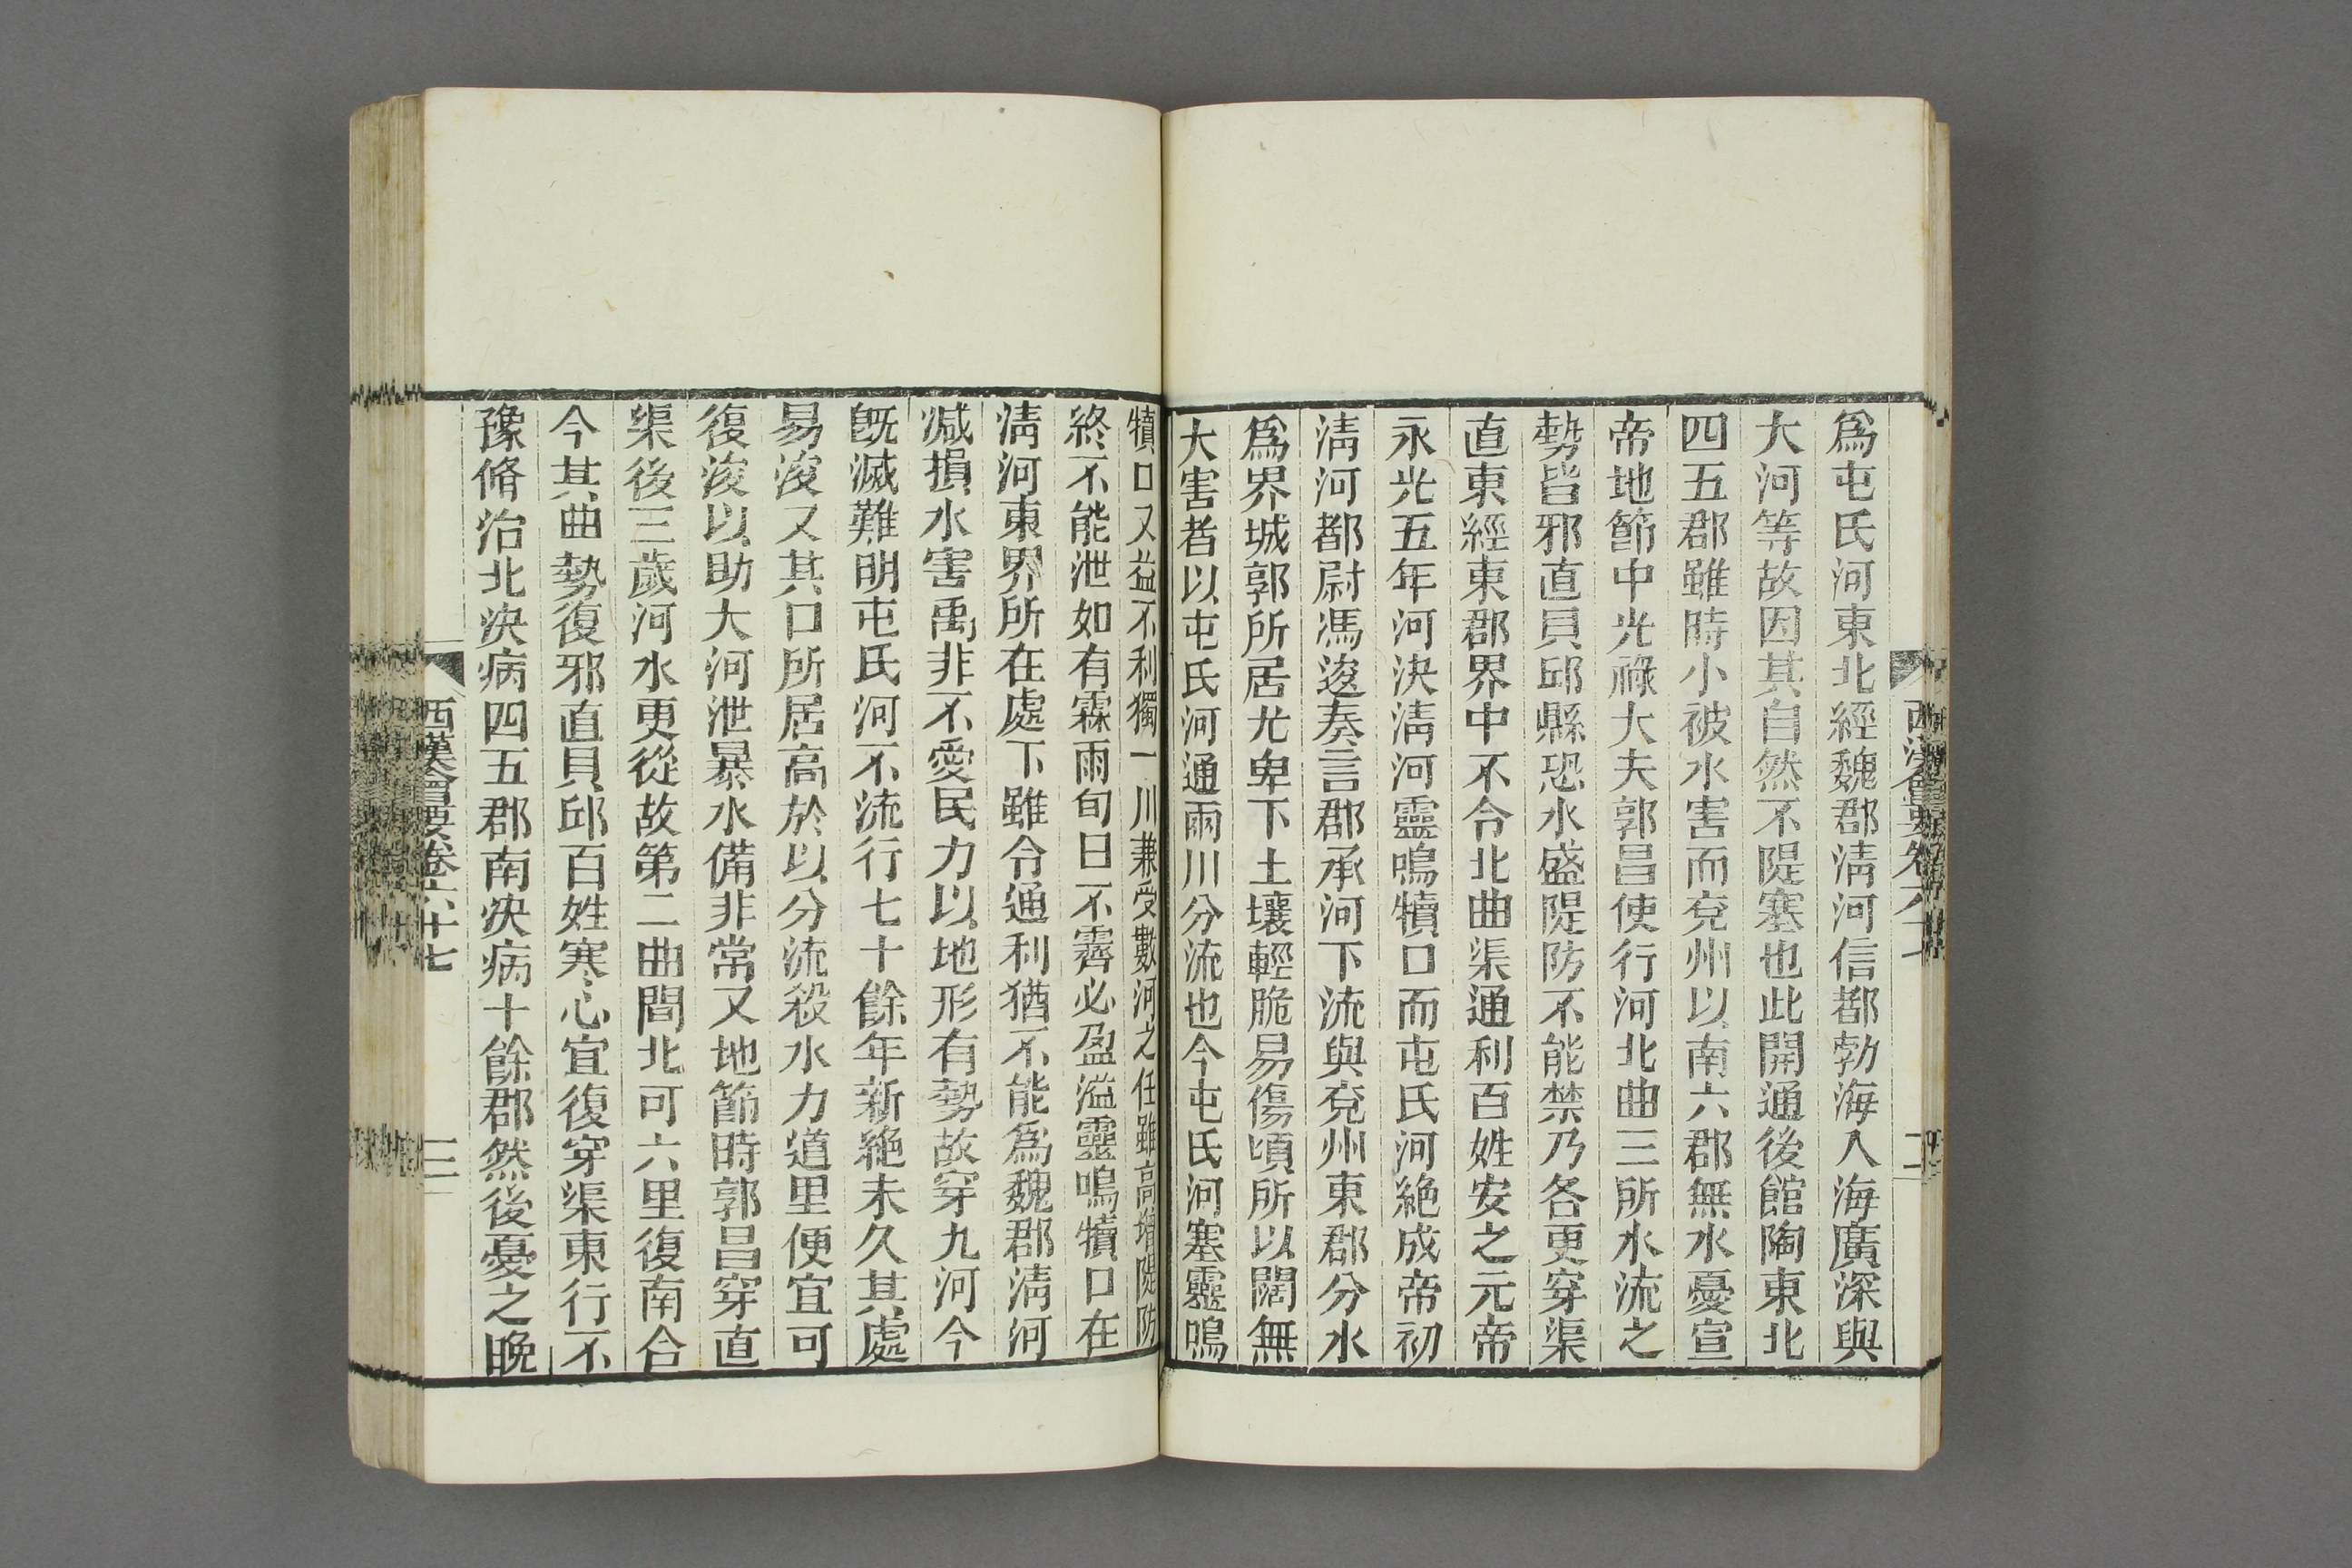 爲屯氏河東北經魏郡淸河信都勃海入海廣深與
大河等故因其自然不隄塞也此開通後館陶東北
四五郡雖時小被水害而兗州以南六郡無水憂宣
帝地節中光祿大夫郭昌使行河北曲三所水流之
勢皆邪直貝邱縣恐水盛隄防不能禁乃各更穿渠
直東經東郡界中不令北曲渠通利百姓安之元帝
永光五年河決淸河靈鳴犢口而屯氏河絶成帝初
淸河都尉馮逡奏言郡承河下流與兗州東郡分水
爲界城郭所居尤卑下土壤輕脆易傷頃所以闊無
大害者以屯氏河通兩川分流也今屯氏河塞靈鳴
犢口又益不利獨一川兼受數河之任雖高增隄防
終不能泄如有霖雨旬日不霽必盈溢靈鳴犢口在
淸河東界所在處下雖令通利猶不能爲魏郡淸河
減損水害禹非不愛民力以地形有勢故穿九河今
旣滅難明屯氏河不流行七十餘年新絶未久其處
易浚又其口所居高於以分流殺水力道里便宜可
復浚以助大河泄暴水備非常又地節時郭昌穿直
渠後三歲河水更從故第二曲間北可六里復南合
今其曲勢復邪直貝邱百姓寒心宜復穿渠東行不
豫脩治北決病四五郡南決病十餘郡然後憂之晚
西漢會要卷六十七
三